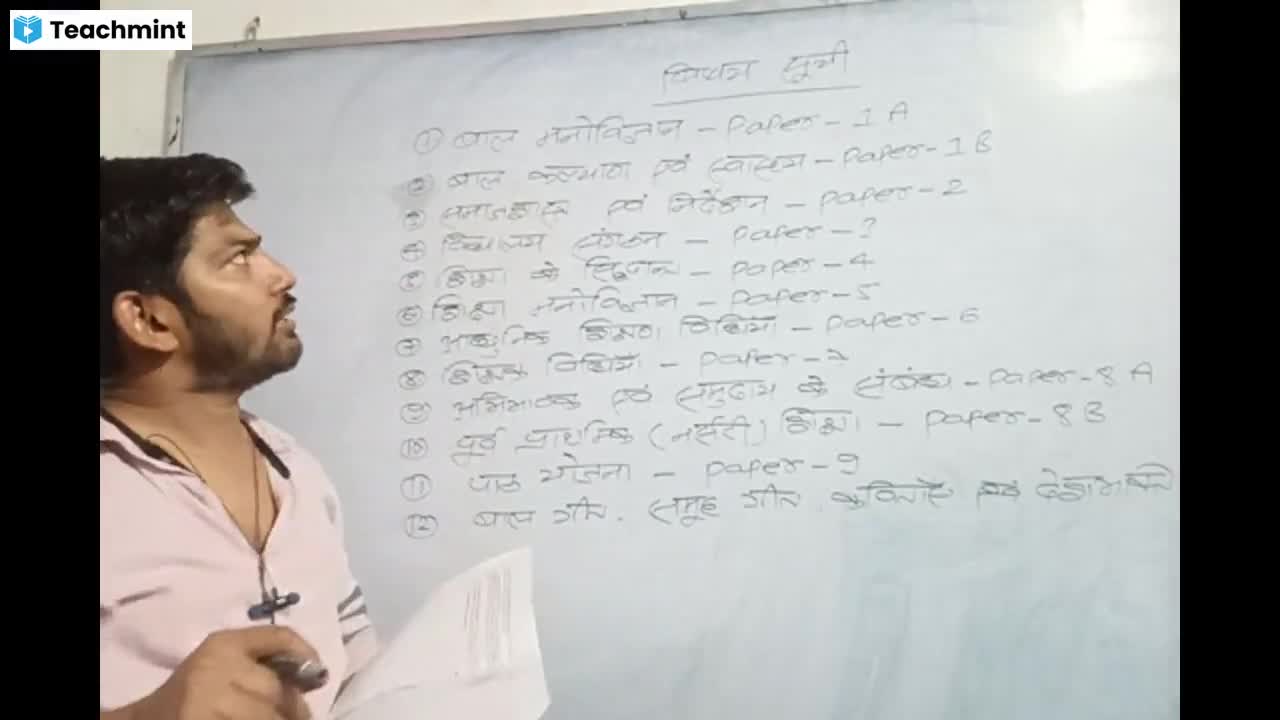 Teachmint
विषय सूची
① बाल मनोविज्ञान - Paper - 1 A
② बाल कल्याण एवं स्वास्थ्य - Paper - 1 B
③ समाजशास्त्र एवं निर्देशन - Paper - 2
④ विद्यालय संगठन - Paper - 3
⑤ शिक्षा के सिद्धान्त - Paper - 4
⑥ शिक्षा मनोविज्ञान - Paper - 5
⑦ आधुनिक शिक्षण विधियां - Paper - 6
⑧ शिक्षण विधियां - Paper - 7
⑨ अभिभावक एवं समुदाय के संबंध - Paper - 8 A
⑩ पूर्व प्राथमिक (नर्सरी) शिक्षा - Paper - 8 B
⑪ पाठ योजना - Paper - 9
⑫ बाल गीत, समूह गीत, कविताएं एवं देशभक्ति